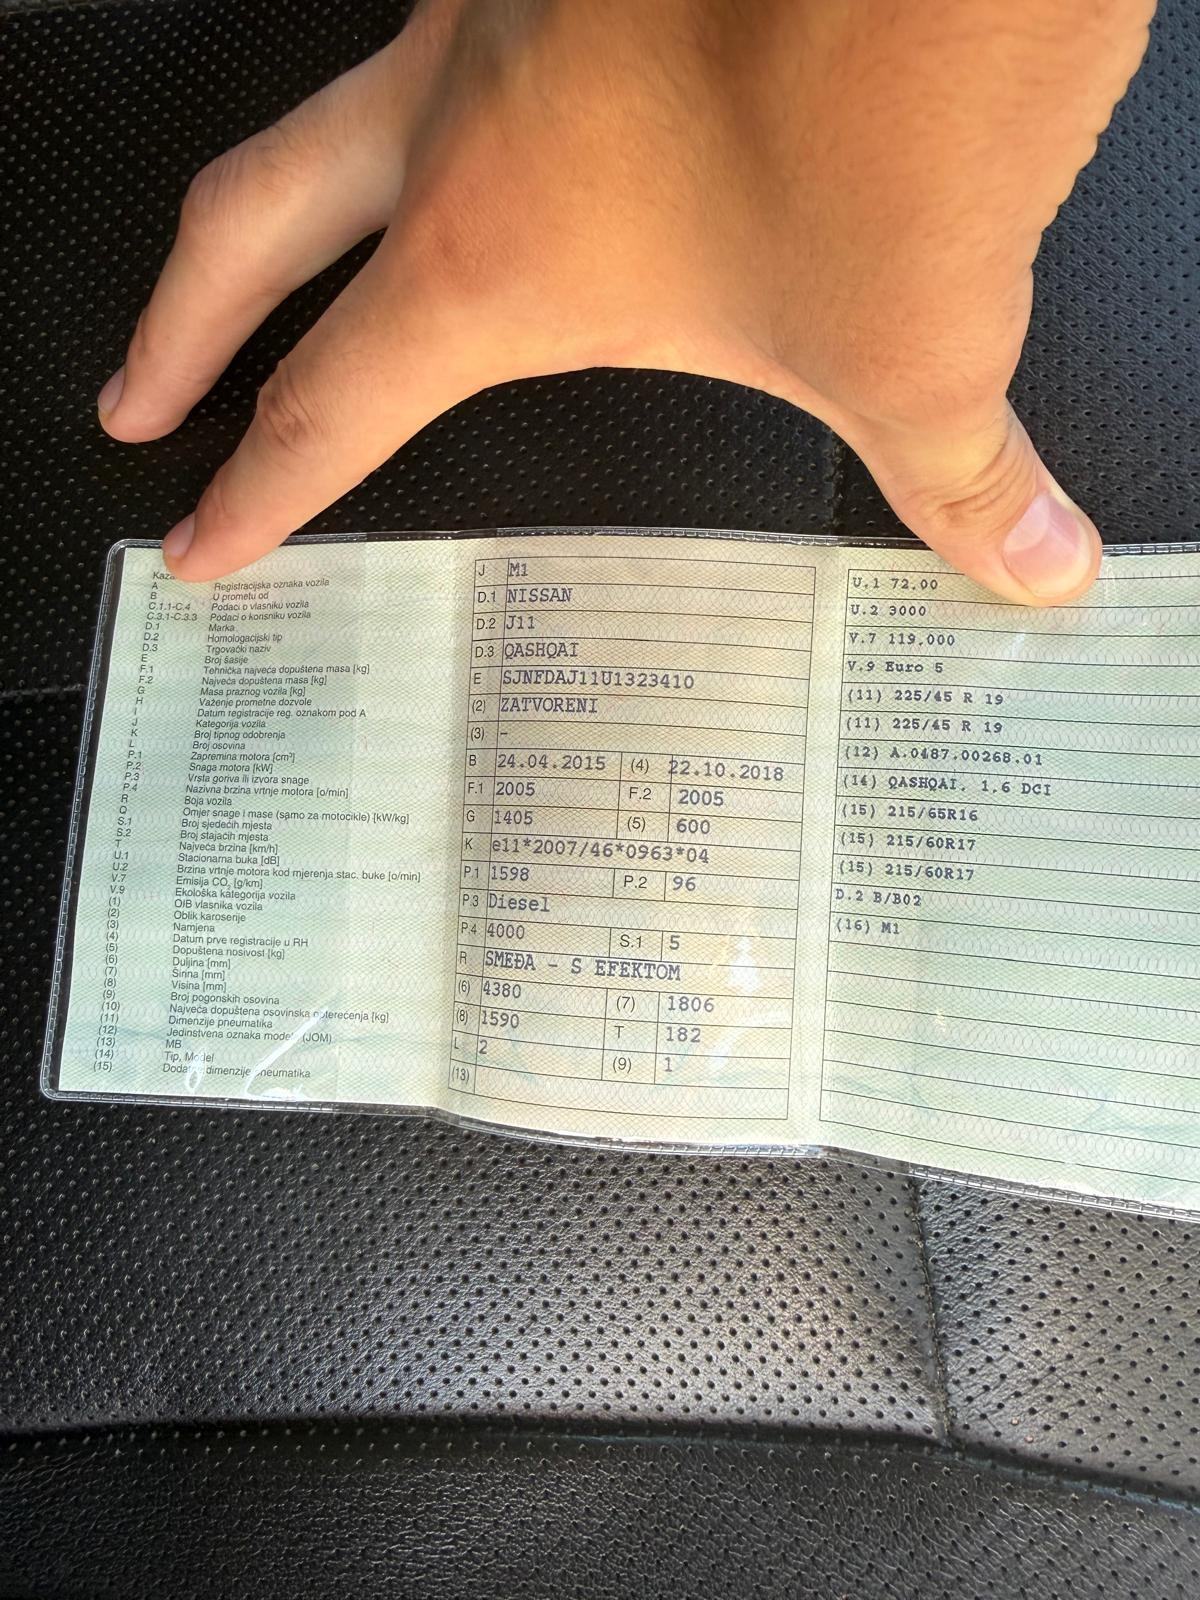 A Registracijska oznaka vozila
B U prometu od
C.1.1-C.4 Podaci o vlasniku vozila
C.3.1-C.3.3 Podaci o korisniku vozila
D.1 Marka
D.2 Homologacijski tip
D.3 Trgovački naziv
E Broj šasije
F.1 Tehnička najveća dopuštena masa [kg]
F.2 Najveća dopuštena masa [kg]
G Masa praznog vozila [kg]
H Važenje prometne dozvole
I Datum registracije reg. oznakom pod A
J Kategorija vozila
K Broj tipnog odobrenja
L Broj osovina
P.1 Zapremina motora [cm³]
P.2 Snaga motora [kW]
P.3 Vrsta goriva ili izvora snage
P.4 Nazivna brzina vrtnje motora [o/min]
R Boja vozila
Q Omjer snage i mase (samo za motocikle) [kW/kg]
S.1 Broj sjedećih mjesta
S.2 Broj stajaćih mjesta
T Najveća brzina [km/h]
U.1 Stacionarna buka [dB]
U.2 Brzina vrtnje motora kod mjerenja stac. buke [o/min]
V.7 Emisija CO₂ [g/km]
V.9 Ekološka kategorija vozila
(1) OIB vlasnika vozila
(2) Oblik karoserije
(3) Namjena
(4) Datum prve registracije u RH
(5) Dopuštena nosivost [kg]
(6) Duljina [mm]
(7) Širina [mm]
(8) Visina [mm]
(9) Broj pogonskih osovina
(10) Najveća dopuštena osovinska opterećenja [kg]
(11) Dimenzije pneumatika
(12) Jedinstvena oznaka modela (JOM)
(13) MB
(14) Tip, Model
(15) Dodatne dimenzije pneumatika
J M1
D.1 NISSAN
D.2 J11
D.3 QASHQAI
E SJNFDAJ11U1323410
(2) ZATVORENI
(3) -
B 24.04.2015 (4) 22.10.2018
F.1 2005 F.2 2005
G 1405 (5) 600
K e11*2007/46*0963*04
P.1 1598 P.2 96
P.3 Diesel
P.4 4000 S.1 5
R SMEĐA - S EFEKTOM
(6) 4380 (7) 1806
(8) 1590 T 182
L 2 (9) 1
(13)
U.1 72.00
U.2 3000
V.7 119.000
V.9 Euro 5
(11) 225/45 R 19
(11) 225/45 R 19
(12) A.0487.00268.01
(14) QASHQAI. 1.6 DCI
(15) 215/65R16
(15) 215/60R17
(15) 215/60R17
D.2 B/B02
(16) M1